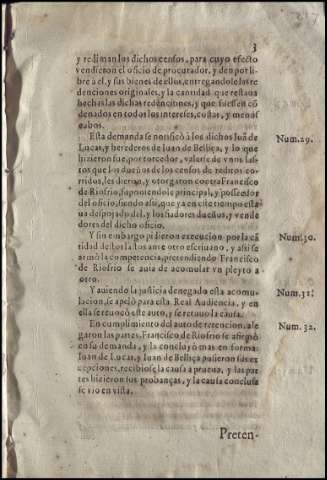 3
y rediman los dichos censos, para cuyo efecto
vendieron el oficio de procurador, y den por li
bre à el, y sus bienes de ellos, entregandole los re
denciones originales, y la cantidad que restaua
hechas las dichas redenciones, y que fuessen cõ
denados en todos los interesses, costas, y menos
cabos.
Esta demanda se notificò à los dichos Iuã de Num.29.
Lucas, y herederos de Iuan de Belliça, y lo que
hizieron fue, por torcedor, valerse de vnos las-
tos que los dueños de los censos de reditos co-
rridos, les dieron, y otorgaron contra Francisco
de Riofrio, suponiendole principal, y posseedor
del oficio, siendo assi, que ya en este tiempo esta
ua despojado del, y los fiadores dueños, y vende
dores del dicho oficio.
Y sin embargo pidieron execucion por la cã Num.30.
tidad de los lastos ante otro escriuano, y assi se
armò la competencia, pretendiendo Francisco
de Riofrio se auia de acomular vn pleyto a
otro.
Y auiendo la justicia denegado esta acomu- Num.31.
lacion, se apelò para esta Real Audiencia, y en
ella se reuocò este auto, y se retuuo la causa.
En cumplimiento del auto de retencion, ale Num. 32.
garon las partes, Francisco de Riofrio se afirmò
en su demanda, y la concluyò mas en forma.
Iuan de Lucas, y Iuan de Belliça pusieron sus ex
cepciones, recibiose la causa à prueua, y las par
tes hizieron sus probanças, y la causa conclusa
se viò en vista.
Preten-